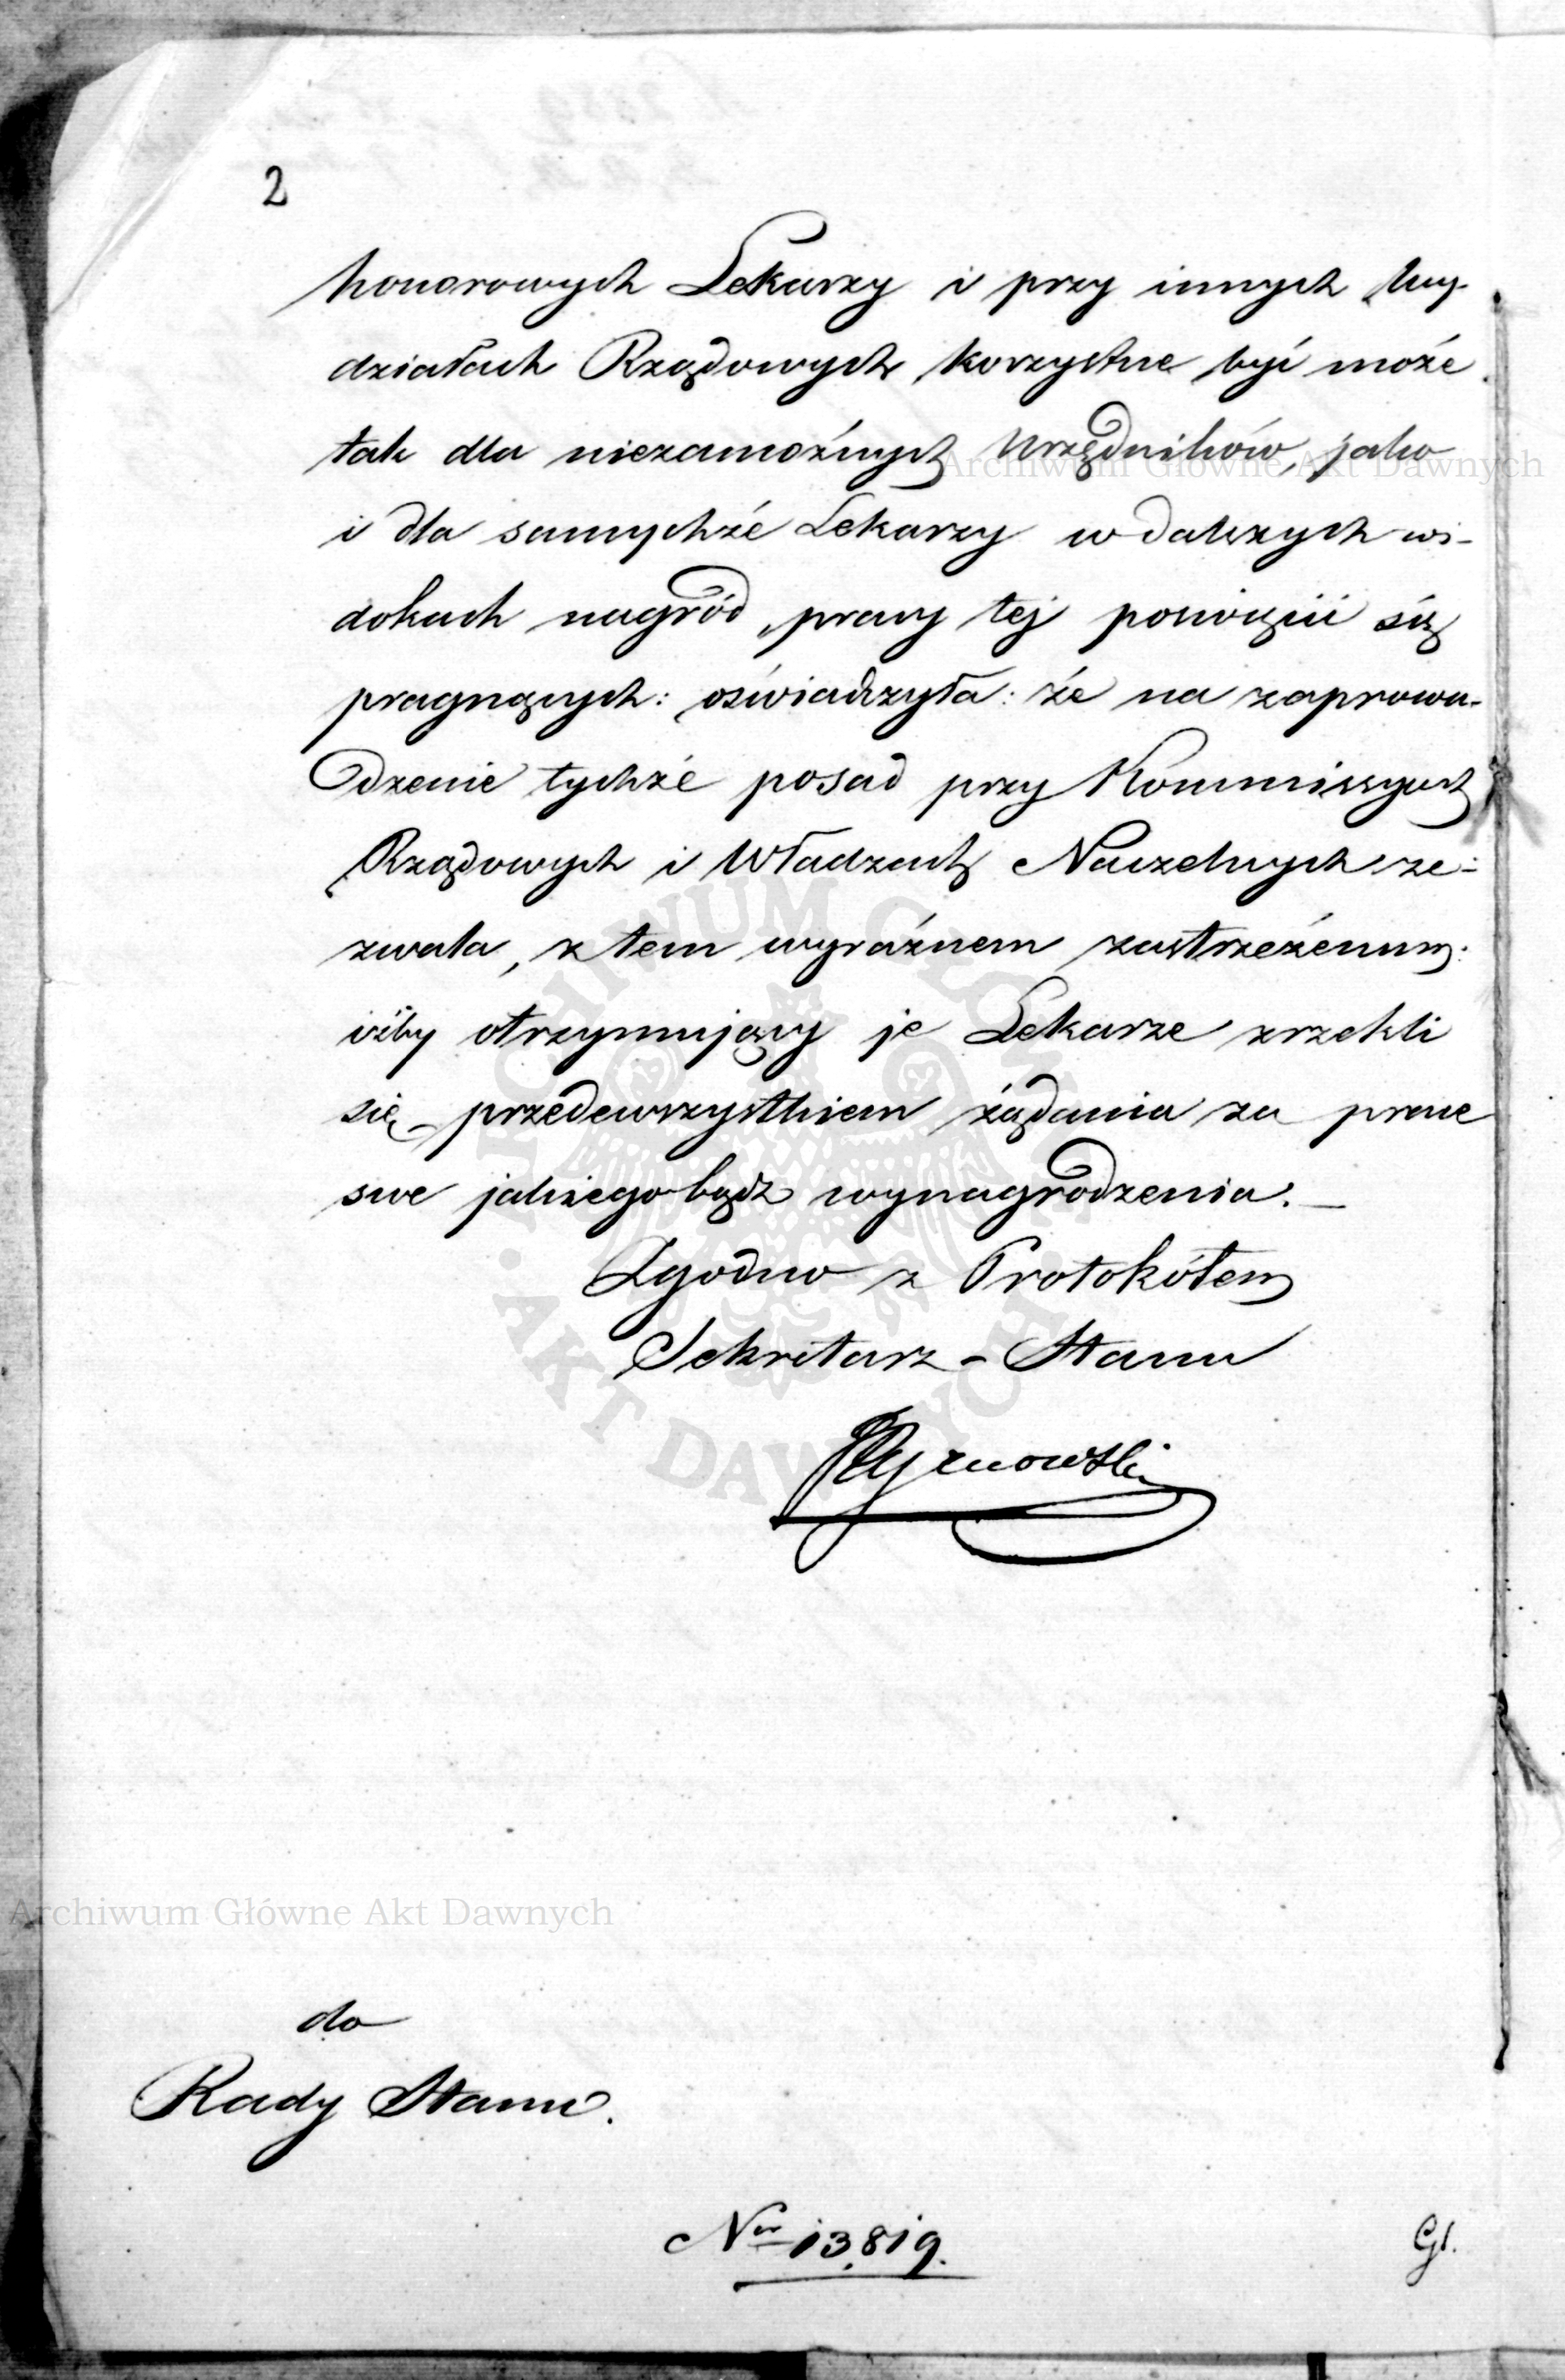 2
honorowych Lekarzy i przy innych Wy-
działach Rządowych, korzystne być może
tak dla niezamożnych Urzędników, jako
i dla samychże Lekarzy w dalszych wi-
dokach nagród, pracy tej poświęcić się
pragnących: oświadczyła: że na zaprowa-
dzenie tychże posad przy Kommissyach
Rządowych i Władzach Naczelnych ze-
zwala, z tem wyraźnem zastrzeżeniem:
iżby otrzymujący je Lekarze zrzekli
się przedewszystkiem żądania za prace
swe jakiegobądź wynagrodzenia. –
Zgodno z Protokółem
Sekretarz - Stanu
do
Rady Stanu.
Nr 13,819.
Gł.
Archiwum Główne Akt Dawnych
Archiwum Główne Akt Dawnych
ARCHIWUM GŁÓWNE
AKT DAWNYCH